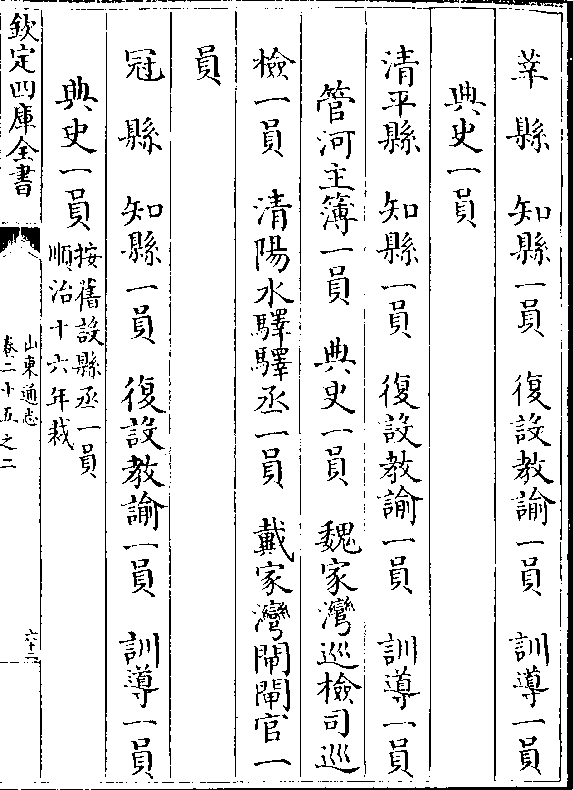 莘縣 知縣一員 復設教諭一員 訓導一員
典史一員
清平縣 知縣一員 復設教諭一員 訓導一員
管河主簿一員 典史一員 魏家灣巡檢司巡
檢一員 清陽水驛驛丞一員 戴家灣閘閘官一
員
冠縣 知縣一員 復設教諭一員 訓導一員
典史一員 按舊設縣丞一員
順治十六年裁
欽定四庫全書
山東通志
卷二十五之二
六十二